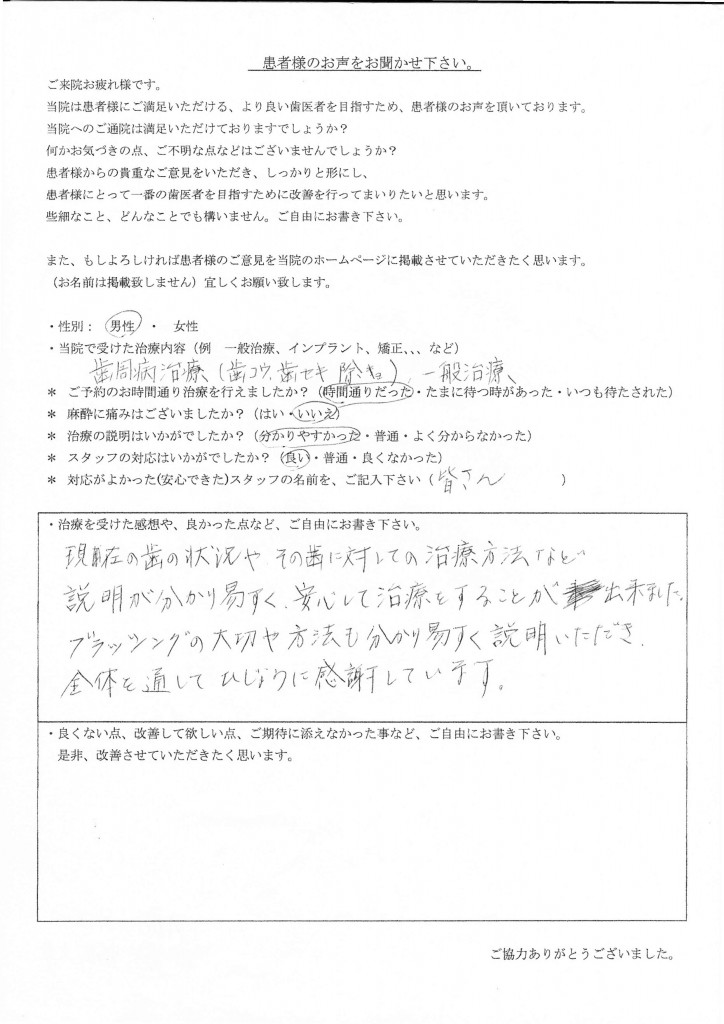 患者様のお声をお聞かせ下さい。
ご来院お疲れ様です。
当院は患者様にご満足いただける、より良い歯医者を目指すため、患者様のお声を頂いております。
当院へのご通院は満足いただけておりますでしょうか？
何かお気づきの点、ご不明な点などはございませんでしょうか？
患者様からの貴重なご意見をいただき、しっかりと形にし、
患者様にとって一番の歯医者を目指すために改善を行ってまいりたいと思います。
些細なこと、どんなことでも構いません。ご自由にお書き下さい。
また、もしよろしければ患者様のご意見を当院のホームページに掲載させていただきたく思います。
（お名前は掲載致しません）宜しくお願い致します。
・性別： 男性 ・ 女性
・当院で受けた治療内容（例　一般治療、インプラント、矯正、、、など）
歯周病治療（歯コウ、歯セキ除キョ）、一般治療、
＊ ご予約のお時間通り治療を行えましたか？（時間通りだった・たまに待つ時があった・いつも待たされた）
＊ 麻酔に痛みはございましたか？（はい・いいえ）
＊ 治療の説明はいかがでしたか？（分かりやすかった・普通・よく分からなかった）
＊ スタッフの対応はいかがでしたか？（良い・普通・良くなかった）
＊ 対応がよかった(安心できた)スタッフの名前を、ご記入下さい（皆さん　　　）
・治療を受けた感想や、良かった点など、ご自由にお書き下さい。
現在の歯の状況や その歯に対しての治療方法など
説明が分かり易すく、安心して治療をすることが出来ました。
ブラッシングの大切や方法も分かり易すく説明いただき、
全体を通してひじょうに感謝しています。
・良くない点、改善して欲しい点、ご期待に添えなかった事など、ご自由にお書き下さい。
是非、改善させていただきたく思います。
ご協力ありがとうございました。